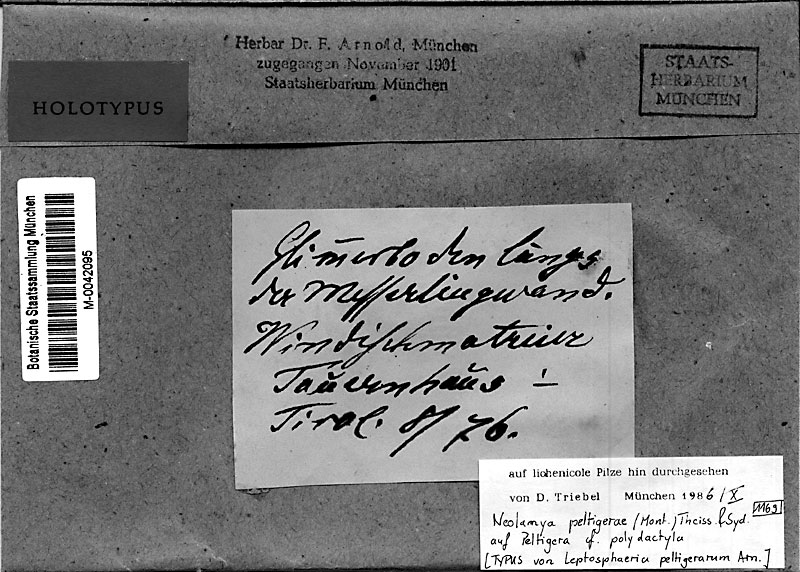 Herbar Dr. F. Arnold, München
zugegangen November 1901
Staatsherbarium München
STAATS-
HERBARIUM
MÜNCHEN
HOLOTYPUS
Botanische Staatssammlung München
M-0042095
Glimerboden längs
der Messerlingwand.
Windischmatreier
Tauernhaus
Tirol. 8/76.
auf lichenicole Pilze hin durchgesehen
von D. Triebel München 1986/X
Neolamya peltigerae (Mont.) Theiss. & Syd. 1169
auf Peltigera cf. polydactyla
[TYPUS von Leptosphaeria peltigerarum Arn.]